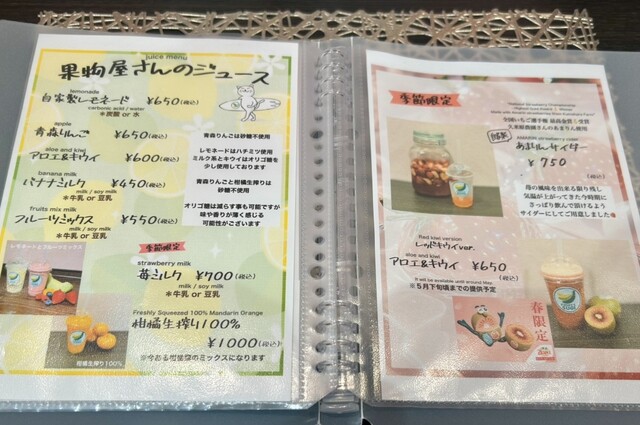 juice menu
果物屋さんのジュース
lemonade
自家製レモネード ¥650(税込)
carbonic acid / water
＊炭酸 or 水
apple
青森りんご ¥650(税込)
aloe and kiwi
アロエ&キウイ ¥600(税込)
banana milk
バナナミルク ¥450(税込)
milk / soy milk
＊牛乳 or 豆乳
fruits mix milk
フルーツミックス ¥550(税込)
milk / soy milk
＊牛乳 or 豆乳
青森りんごは砂糖不使用
レモネードはハチミツ使用
ミルク系とキウイはオリゴ糖を
少し使用しております
青森りんごと柑橘生搾りは
砂糖不使用
オリゴ糖は減らす事も可能ですが
味や香りが薄く感じる
可能性がございます
レモネードとフルーツミックス
季節限定
strawberry milk
苺ミルク ¥700(税込)
milk / soy milk
＊牛乳 or 豆乳
Freshly Squeezed 100% Mandarin Orange
柑橘生搾り100%
¥1000(税込)
※今ある柑橘類のミックスになります
柑橘生搾り100%
季節限定
全国いちご選手権 最高金賞受賞
あまりんサイダー
¥750
(税込)
苺の風味を出来る限り残し
気温が上がってきた今時期に
さっぱり飲んで頂けるよう
サイダーにしてご用意しました
Red kiwi version
レッドキウイver.
aloe and kiwi
アロエ&キウイ ¥650(税込)
It will be available until around May.
※5月下旬頃までの提供予定
春限定